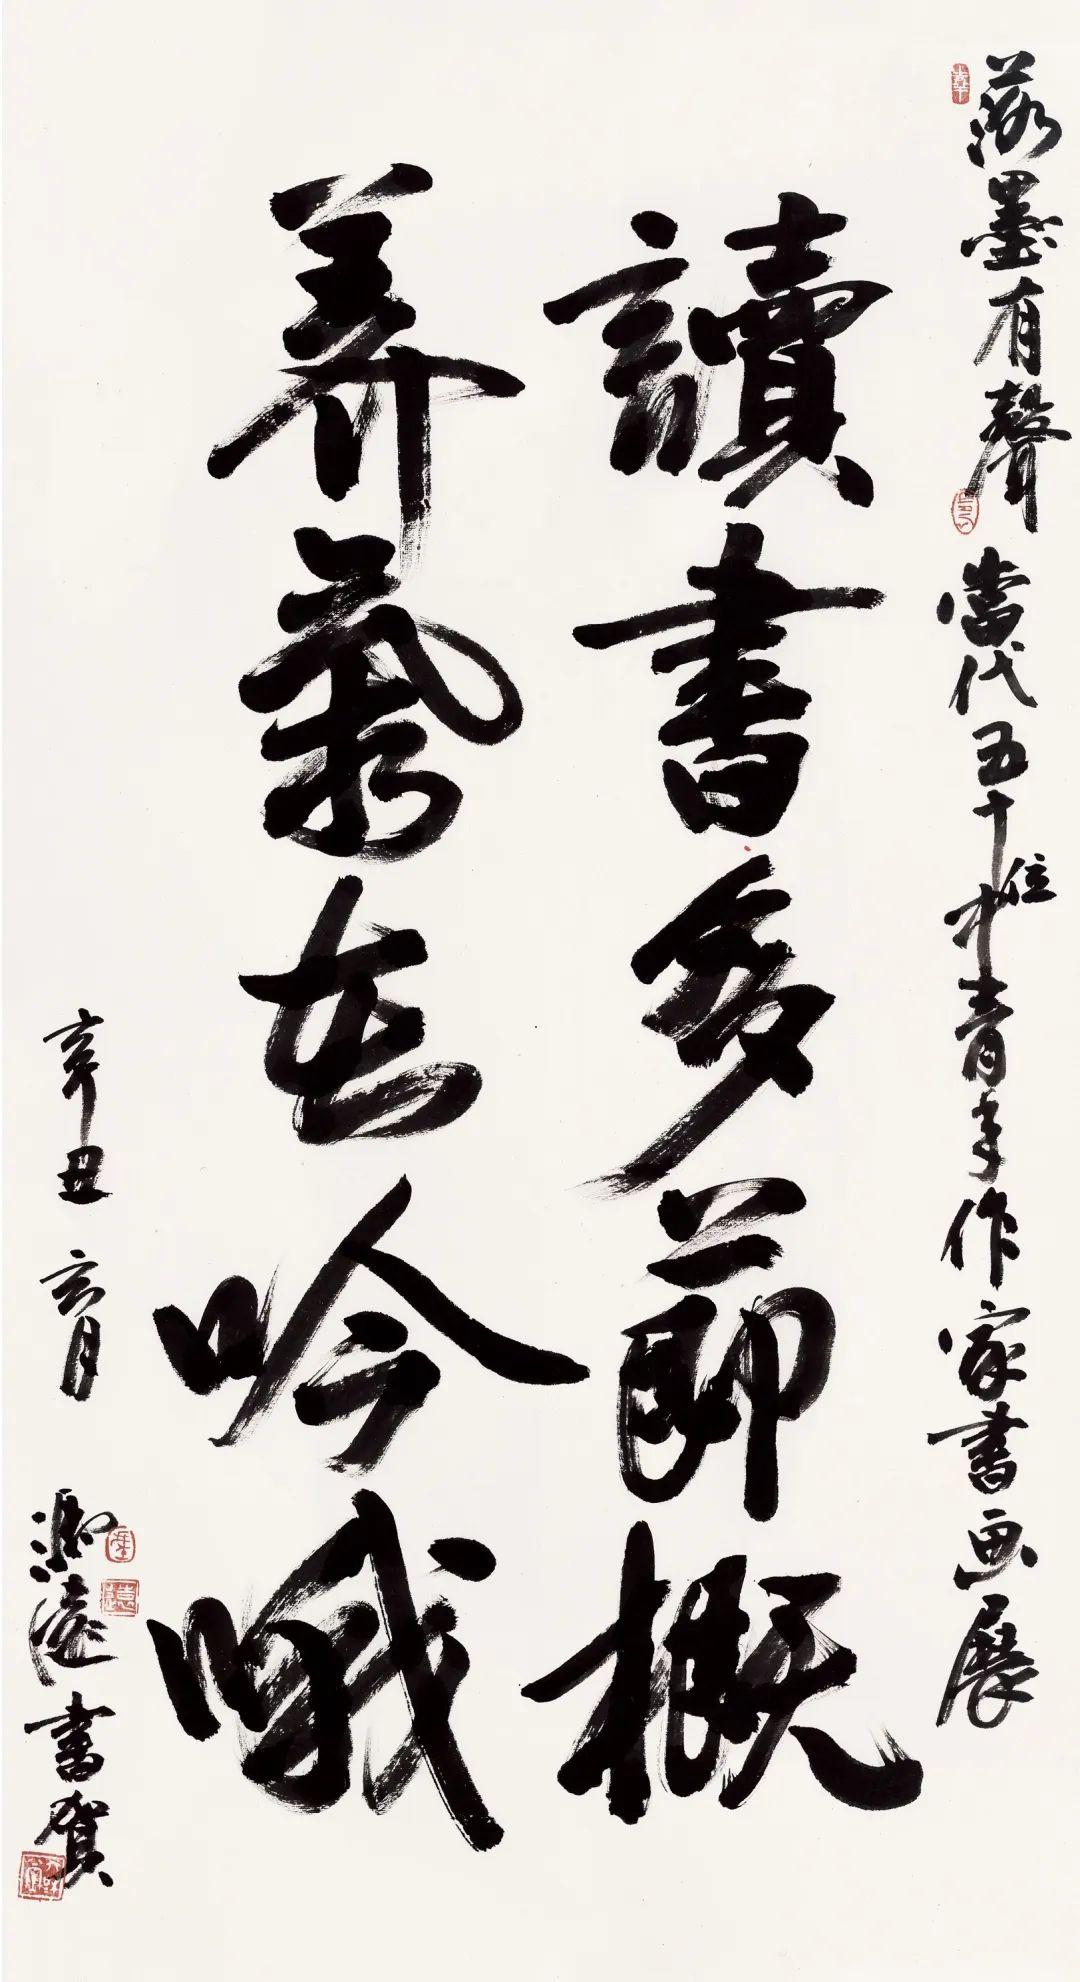 落墨有聲 當代五十位中青年作家書画展
讀書多節概
養氣在吟哦
辛丑 亥月
遠書賀